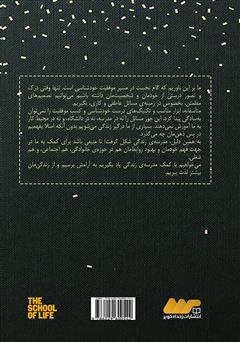 ما بر این باوریم که گام نخست در مسیر موفقیت خودشناسی است. تنها وقتی درک
و تصور درستی از خودمان و شخصیت‌مان داشته باشیم می‌توانیم تصمیم‌های
مطمئن، بخصوص در زمینه‌ی مسائل عاطفی و کاری، بگیریم.
متأسفانه، ابزار مناسب و تکنیک‌های درست خودشناسی و کسب موفقیت را نمی‌توان
به‌سادگی پیدا کرد. این جور مسائل را نه در مدرسه، نه در دانشگاه، و نه در محیط کار
به ما آموزش نمی‌دهند. بسیاری از ما درگیر زندگی می‌شویم بدون آنکه اصلا بفهمیم
در پس ذهن‌مان چه می‌گذرد.
به همین دلیل، مدرسه‌ی زندگی شکل گرفت؛ تا منبعی باشد برای کمک به ما در
جهت فهم خودمان و بهبود روابط‌مان هم در حوزه‌ی خانوادگی، هم اجتماعی، و هم
شغلی.
می‌خواهیم با کمک مدرسه‌ی زندگی یاد بگیریم به آرامش برسیم و از زندگی‌مان
بیشتر لذت ببریم.
THE
SCHOOL
OF LIFE
انتشارات رخداد کویر